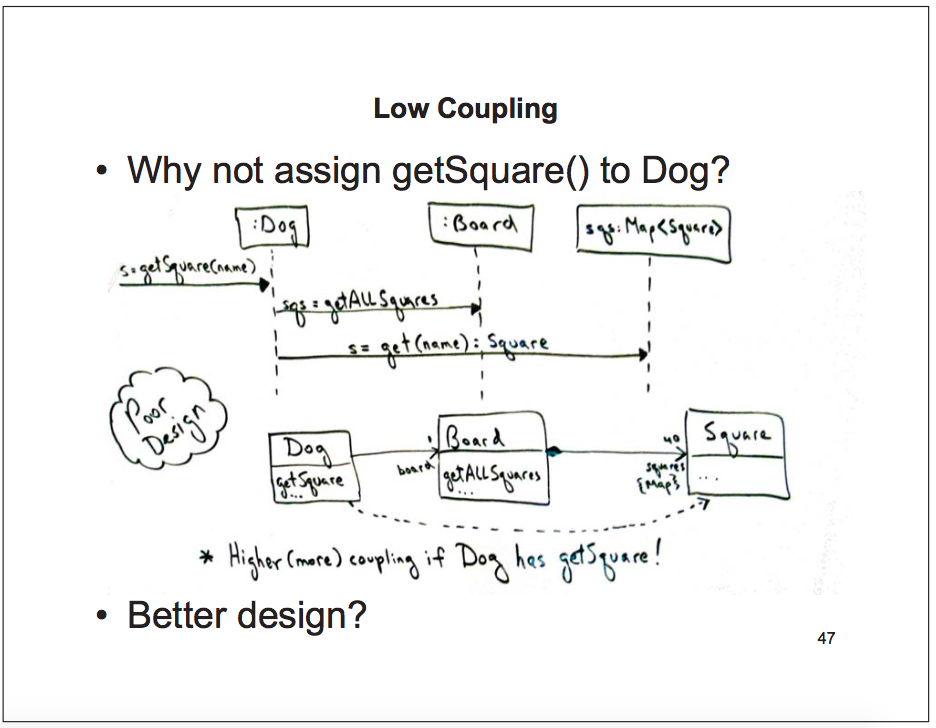 Low Coupling
• Why not assign getSquare() to Dog?
:Dog
:Board
sqs: Map<Square>
s=getSquare(name)
sqs = getALLSquares
s= get(name): Square
Poor
Design
Dog
getSquare
...
board
1
Board
getALLSquares
...
40
squares
{Map}
Square
...
* Higher (more) coupling if Dog has getSquare!
• Better design?
47